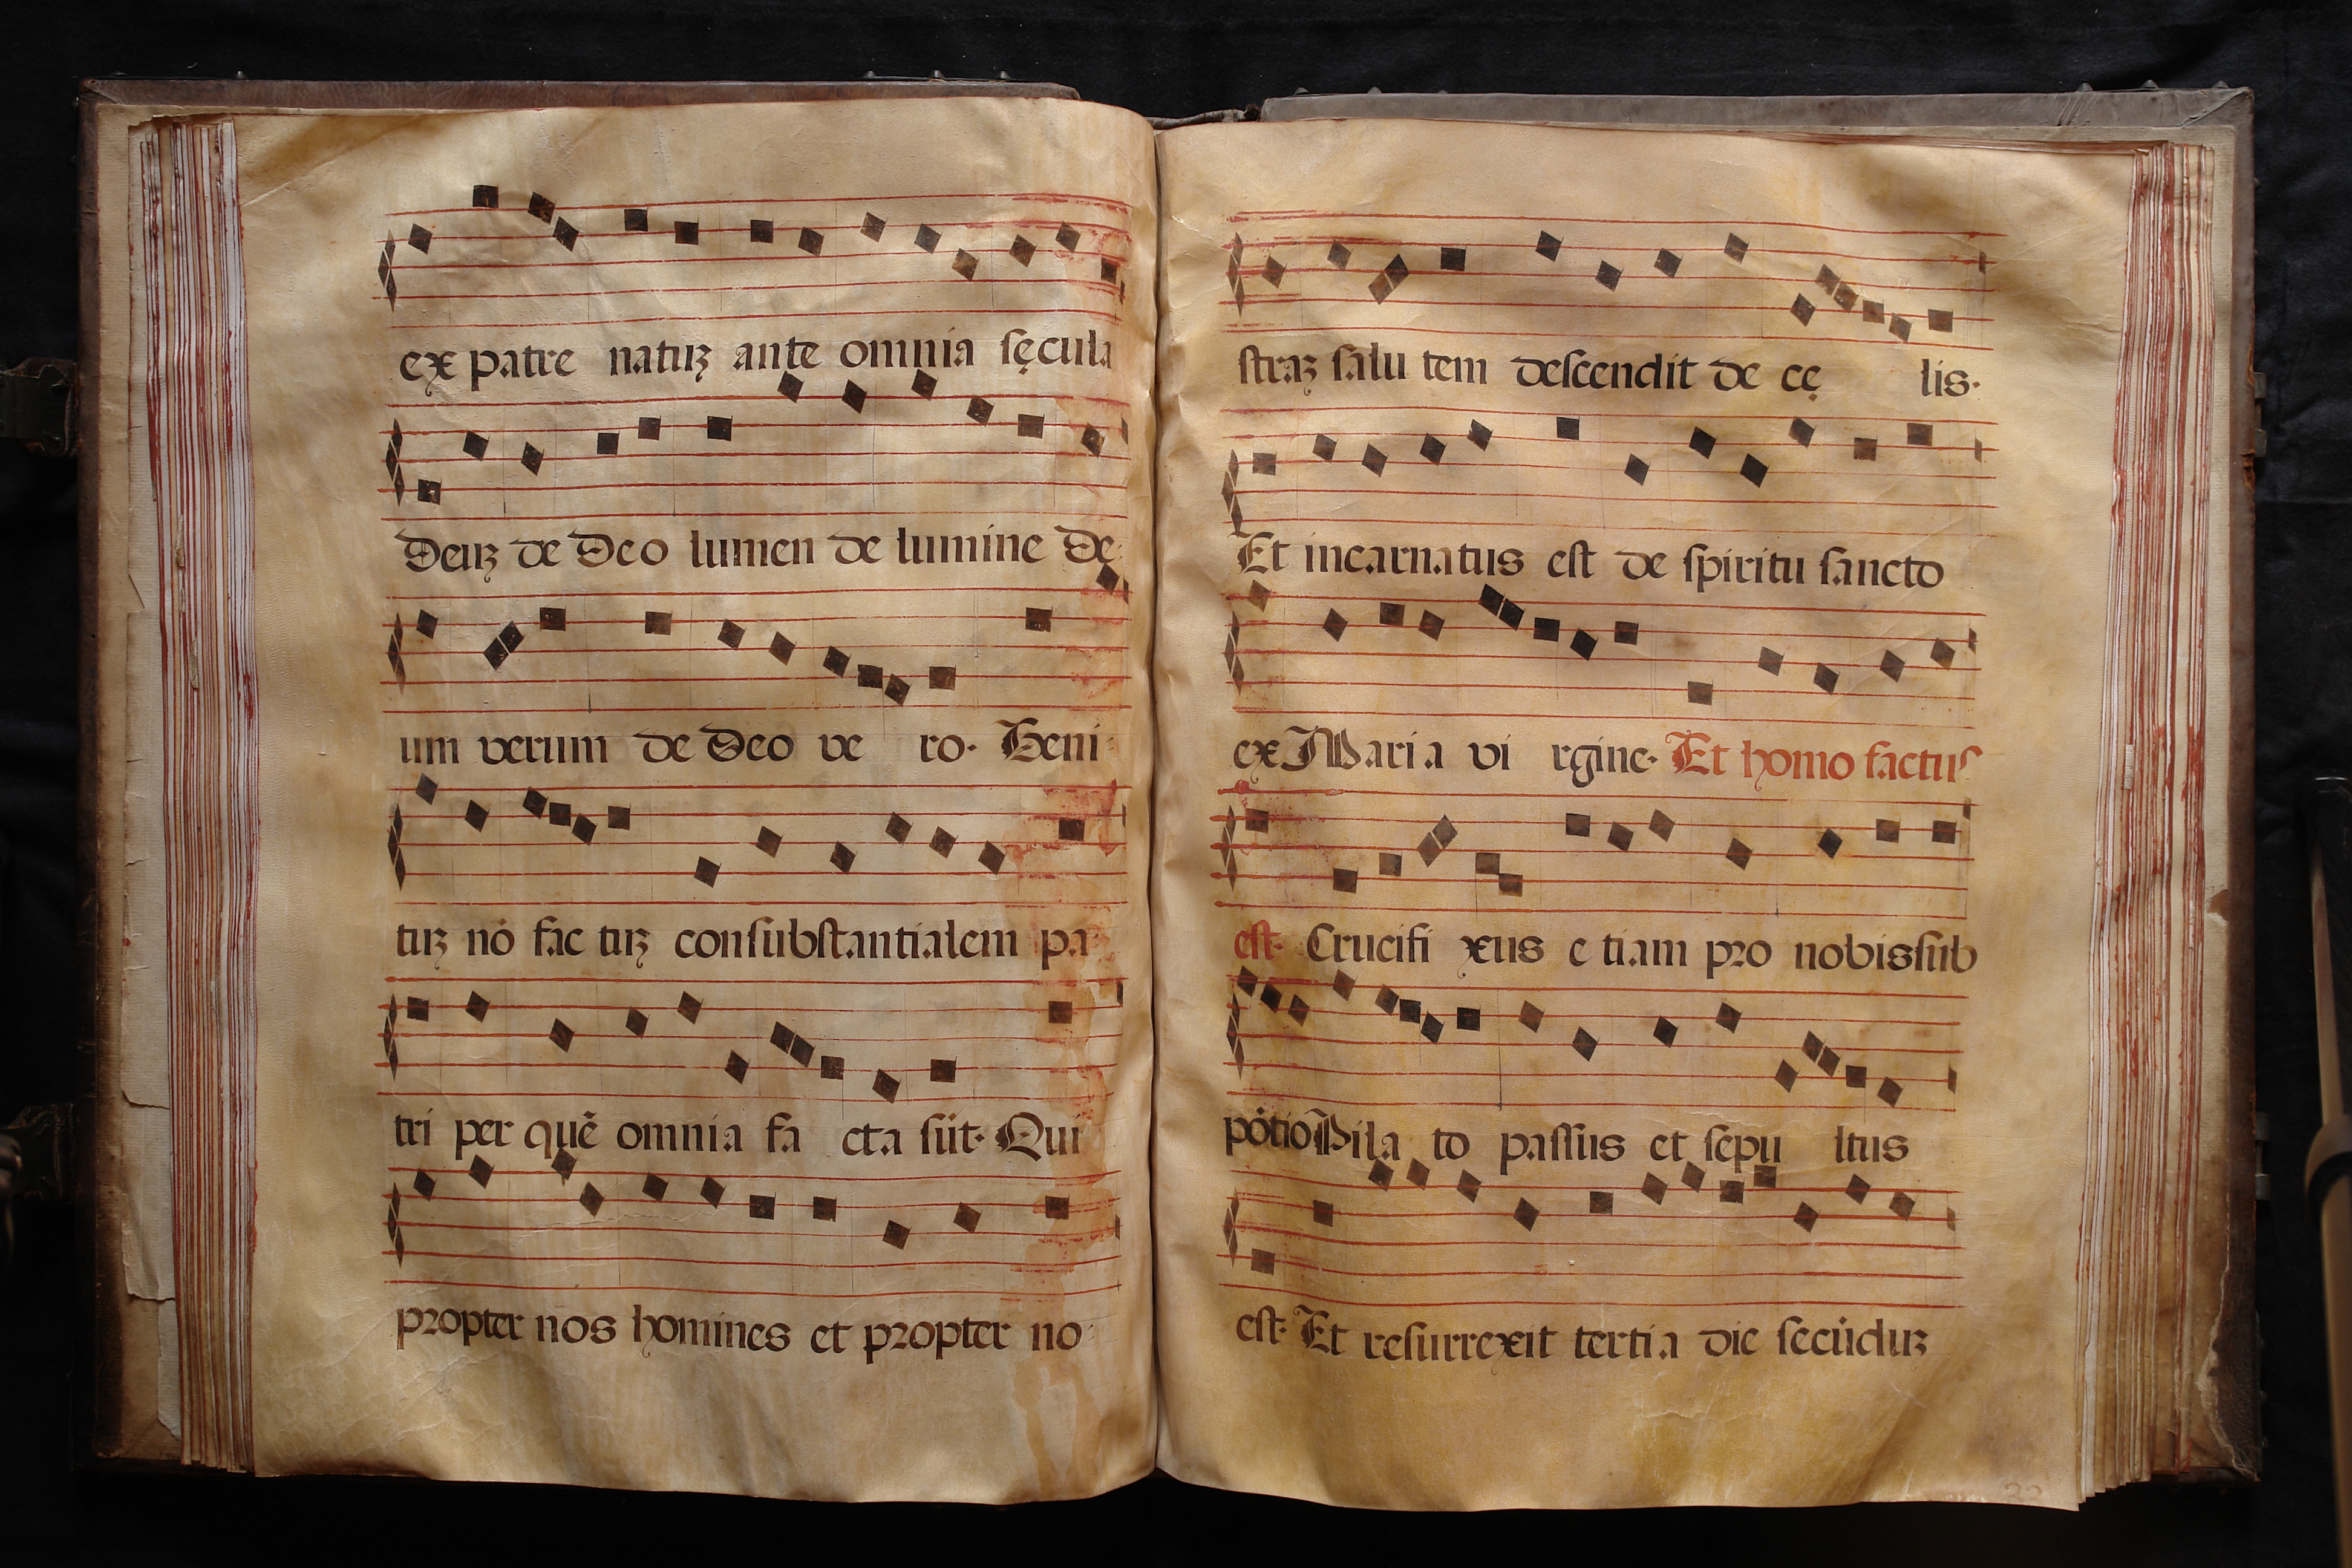 ex patre natuꝫ ante omnia sęcula
Deuꝫ de Deo lumen de lumine De
um verum de Deo ve ro. Geni
tuꝫ nō fac tuꝫ consubstantialem pa
tri per quē omnia fa cta sūt. Qui
propter nos homines et propter no
straꝫ salu tem descendit de cę lis.
Et incarnatus est de spiritu sancto
ex Maria vi rgine. Et homo factus
est. Crucifi xus e tiam pro nobis sub
pōtio Pila to passus et sepu ltus
est. Et resurrexit tertia die secūduꝫ
32